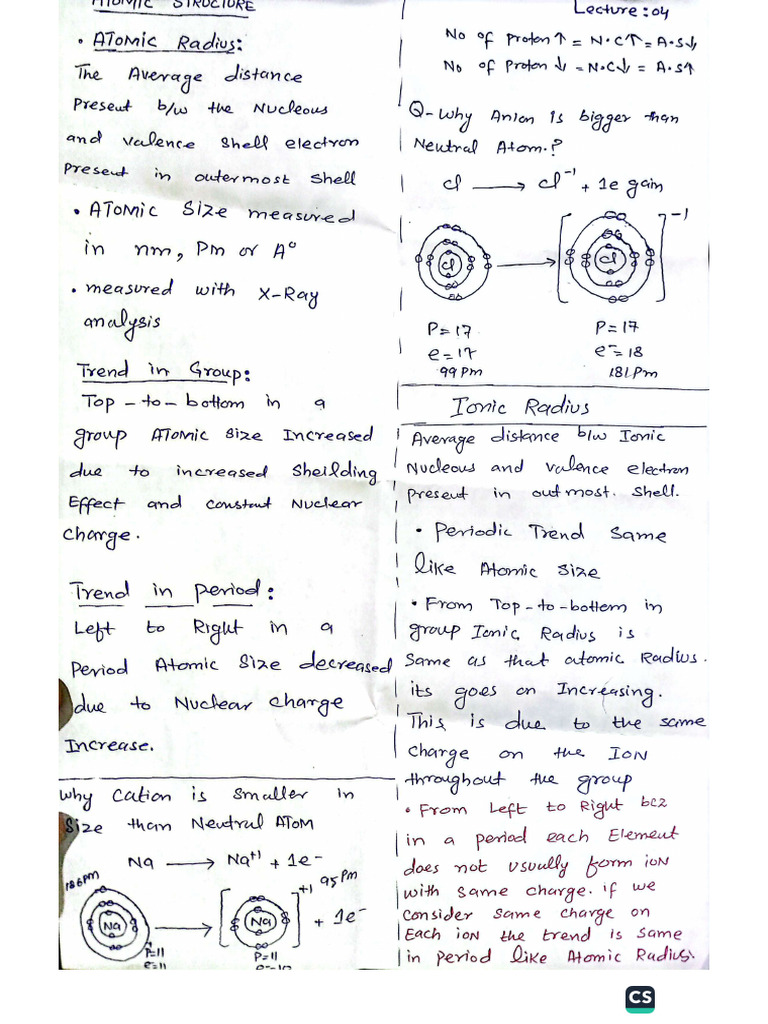 ATOMIC STRUCTURE
• ATomic Radius:
The Average distance
Present b/w the Nucleous
and valence shell electron
Present in outermost shell
• ATomic Size measured
in nm, Pm or A°
• measured with X-Ray
analysis
Trend in Group:
Top-to-bottom in a
group ATomic size Increased
due to increased Sheilding
Effect and constant Nuclear
charge.
Trend in period:
Left to Right in a
Period Atomic Size decreased
due to Nuclear charge
Increase.
Why Cation is smaller in
Size than Neutral ATOM
Na → Na+1 + 1e-
186pm
Na
P=11
e=11
Na
+1
95pm
+ 1e-
P=11
e-=10
Lecture:04
No of Proton ↑ = N.C↑ = A.S↓
No of Proton ↓ = N.C↓ = A.S↑
Q-Why Anion is bigger than
Neutral Atom.?
Cl → Cl-1 + 1e gain
Cl
Cl
-1
P=17
P=17
e=17
e-=18
99Pm
181Pm
Ionic Radius
Average distance b/w Ionic
Nucleous and valence electron
present in outmost. shell.
• Periodic Trend same
like Atomic size
• From Top-to-bottom in
group Ionic Radius is
same as that atomic Radius.
its goes on Increasing.
This is due to the same
charge on the ION
throughout the group
• From Left to Right bcz
in a period each Element
does not usually form ion
with same charge. if we
consider same charge on
Each ion the trend is same
in period like Atomic Radius.
CS